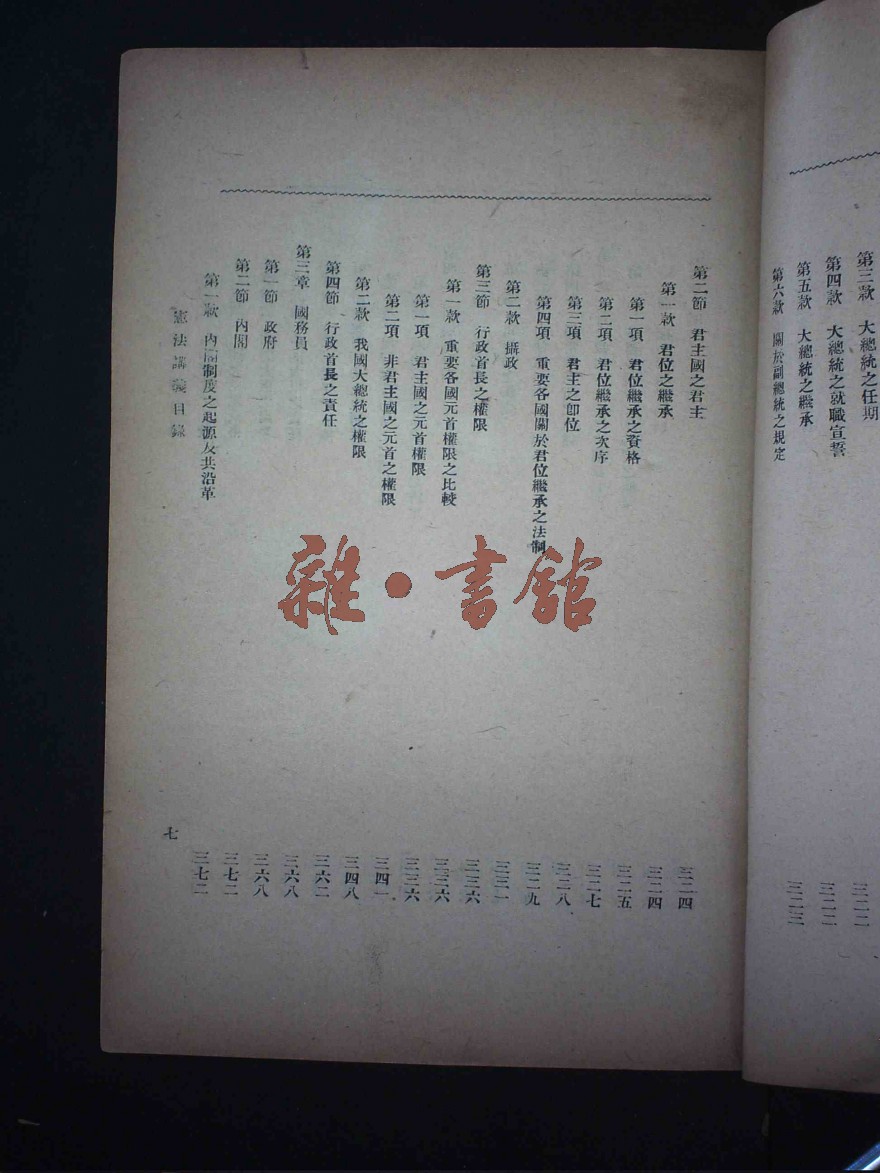 第三款　大總統之任期　三二二
第四款　大總統之就職宣誓　三二二
第五款　大總統之繼承　三二三
第六款　關於副總統之規定
第二節　君主國之君主　三二四
第一款　君位之繼承　三二四
第一項　君位繼承之資格　三二五
第二項　君位繼承之次序　三二七
第三項　君主之卽位　三二八
第四項　重要各國關於君位繼承之法制　三二九
第二款　攝政　三三一
第三節　行政首長之權限　三三六
第一款　重要各國元首權限之比較　三三六
第一項　君主國之元首權限　三三六
第二項　非君主國之元首之權限　三四一
第二款　我國大總統之權限　三四八
第四節　行政首長之責任　三六二
第三章　國務員　三六八
第一節　政府　三六八
第二節　內閣　三七二
第一款　內閣制度之起源及其沿革　三七二
憲法講義目錄　七
雜·書館